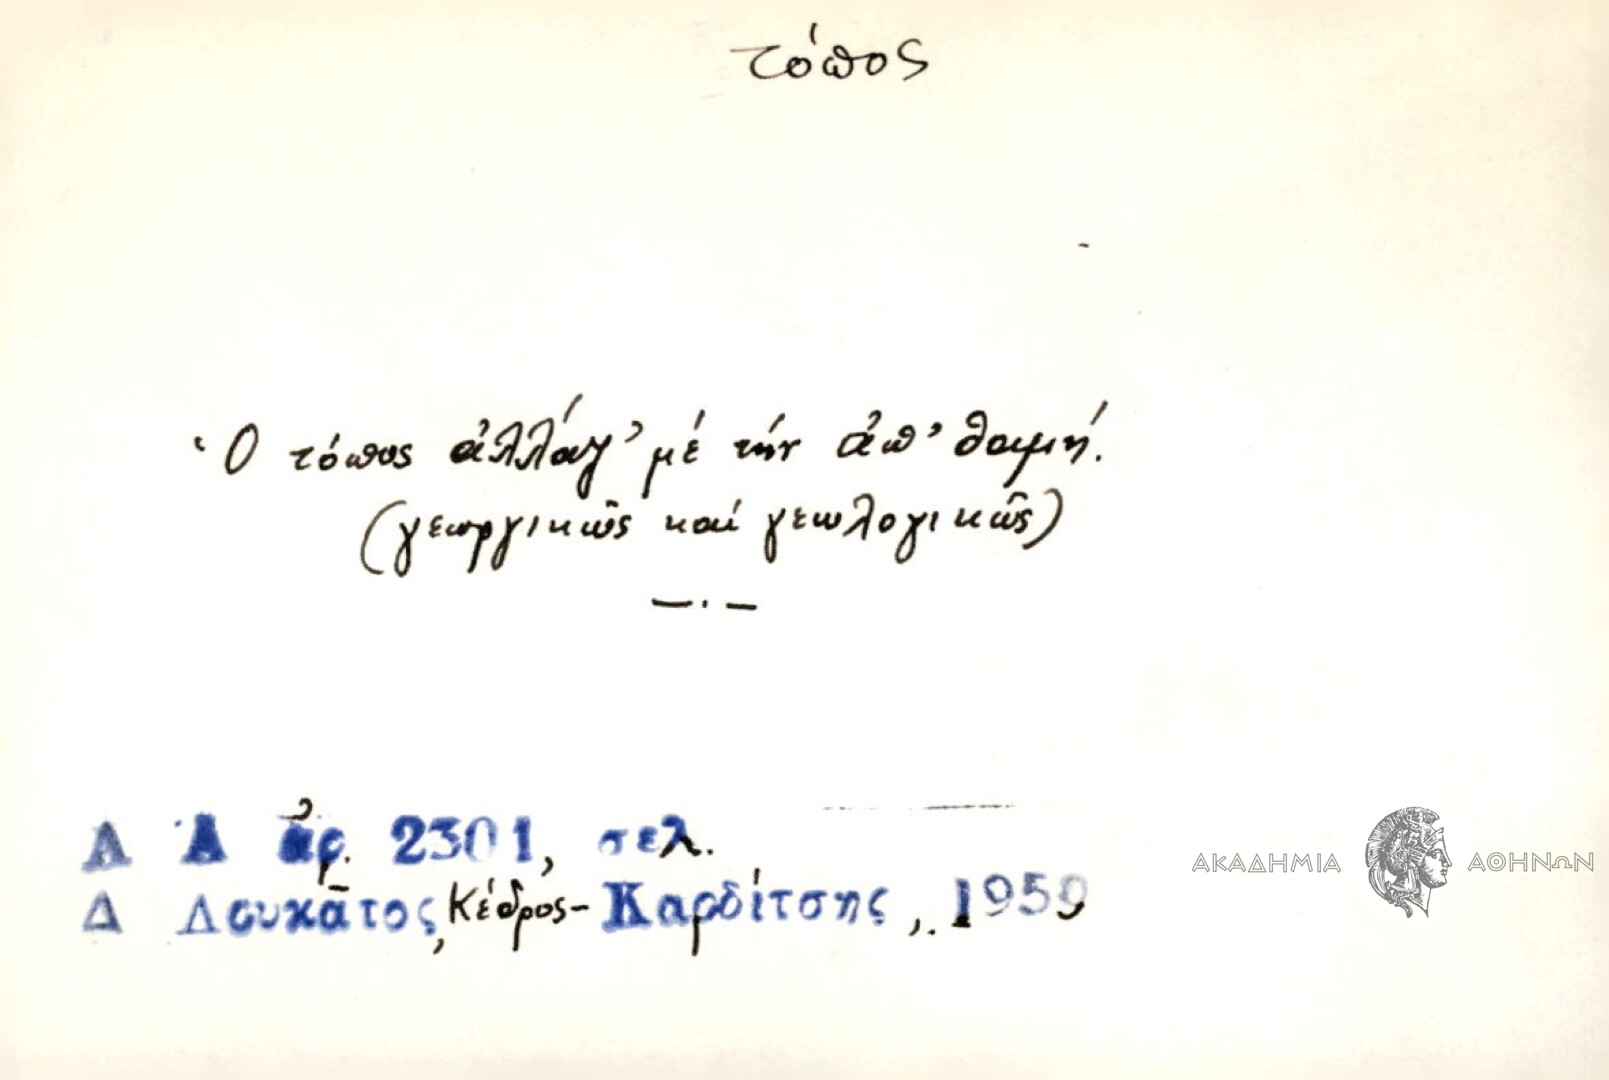 τόπος
Ὁ τόπος ἀλλάγ' μέ τήν ἀπ' θαμή.
(γεωργικῶς καί γεωλογικῶς)
—.—
Λ Α ἀρ. 2301, σελ.
Δ Λουκᾶτος, Κέδρος-Καρδίτσης,. 1959
ΑΚΑΔΗΜΙΑ ΑΘΗΝΩΝ